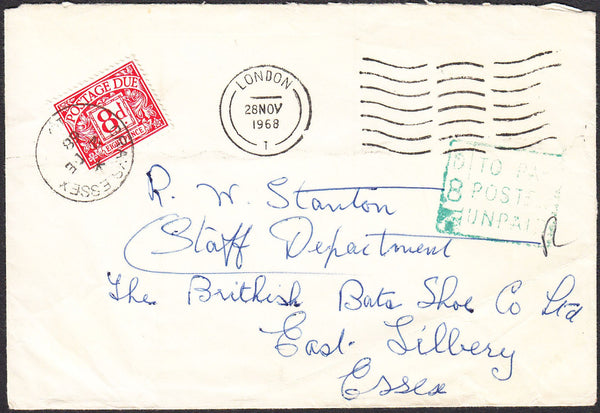 POSTAGE DUE
8d
EIGHT PENCE
LONDON
28 NOV
1968
1
ESSEX
TO PA
8 POST
UNPAI
R. W. Stanton
Staff Department
The Brithish Bata Shoe Co Ltd
East Tilbery
Essex